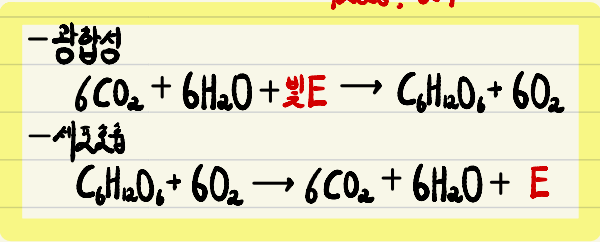 - 광합성
6CO₂ + 6H₂O + 빛E → C₆H₁₂O₆ + 6O₂
- 세포호흡
C₆H₁₂O₆ + 6O₂ → 6CO₂ + 6H₂O + E